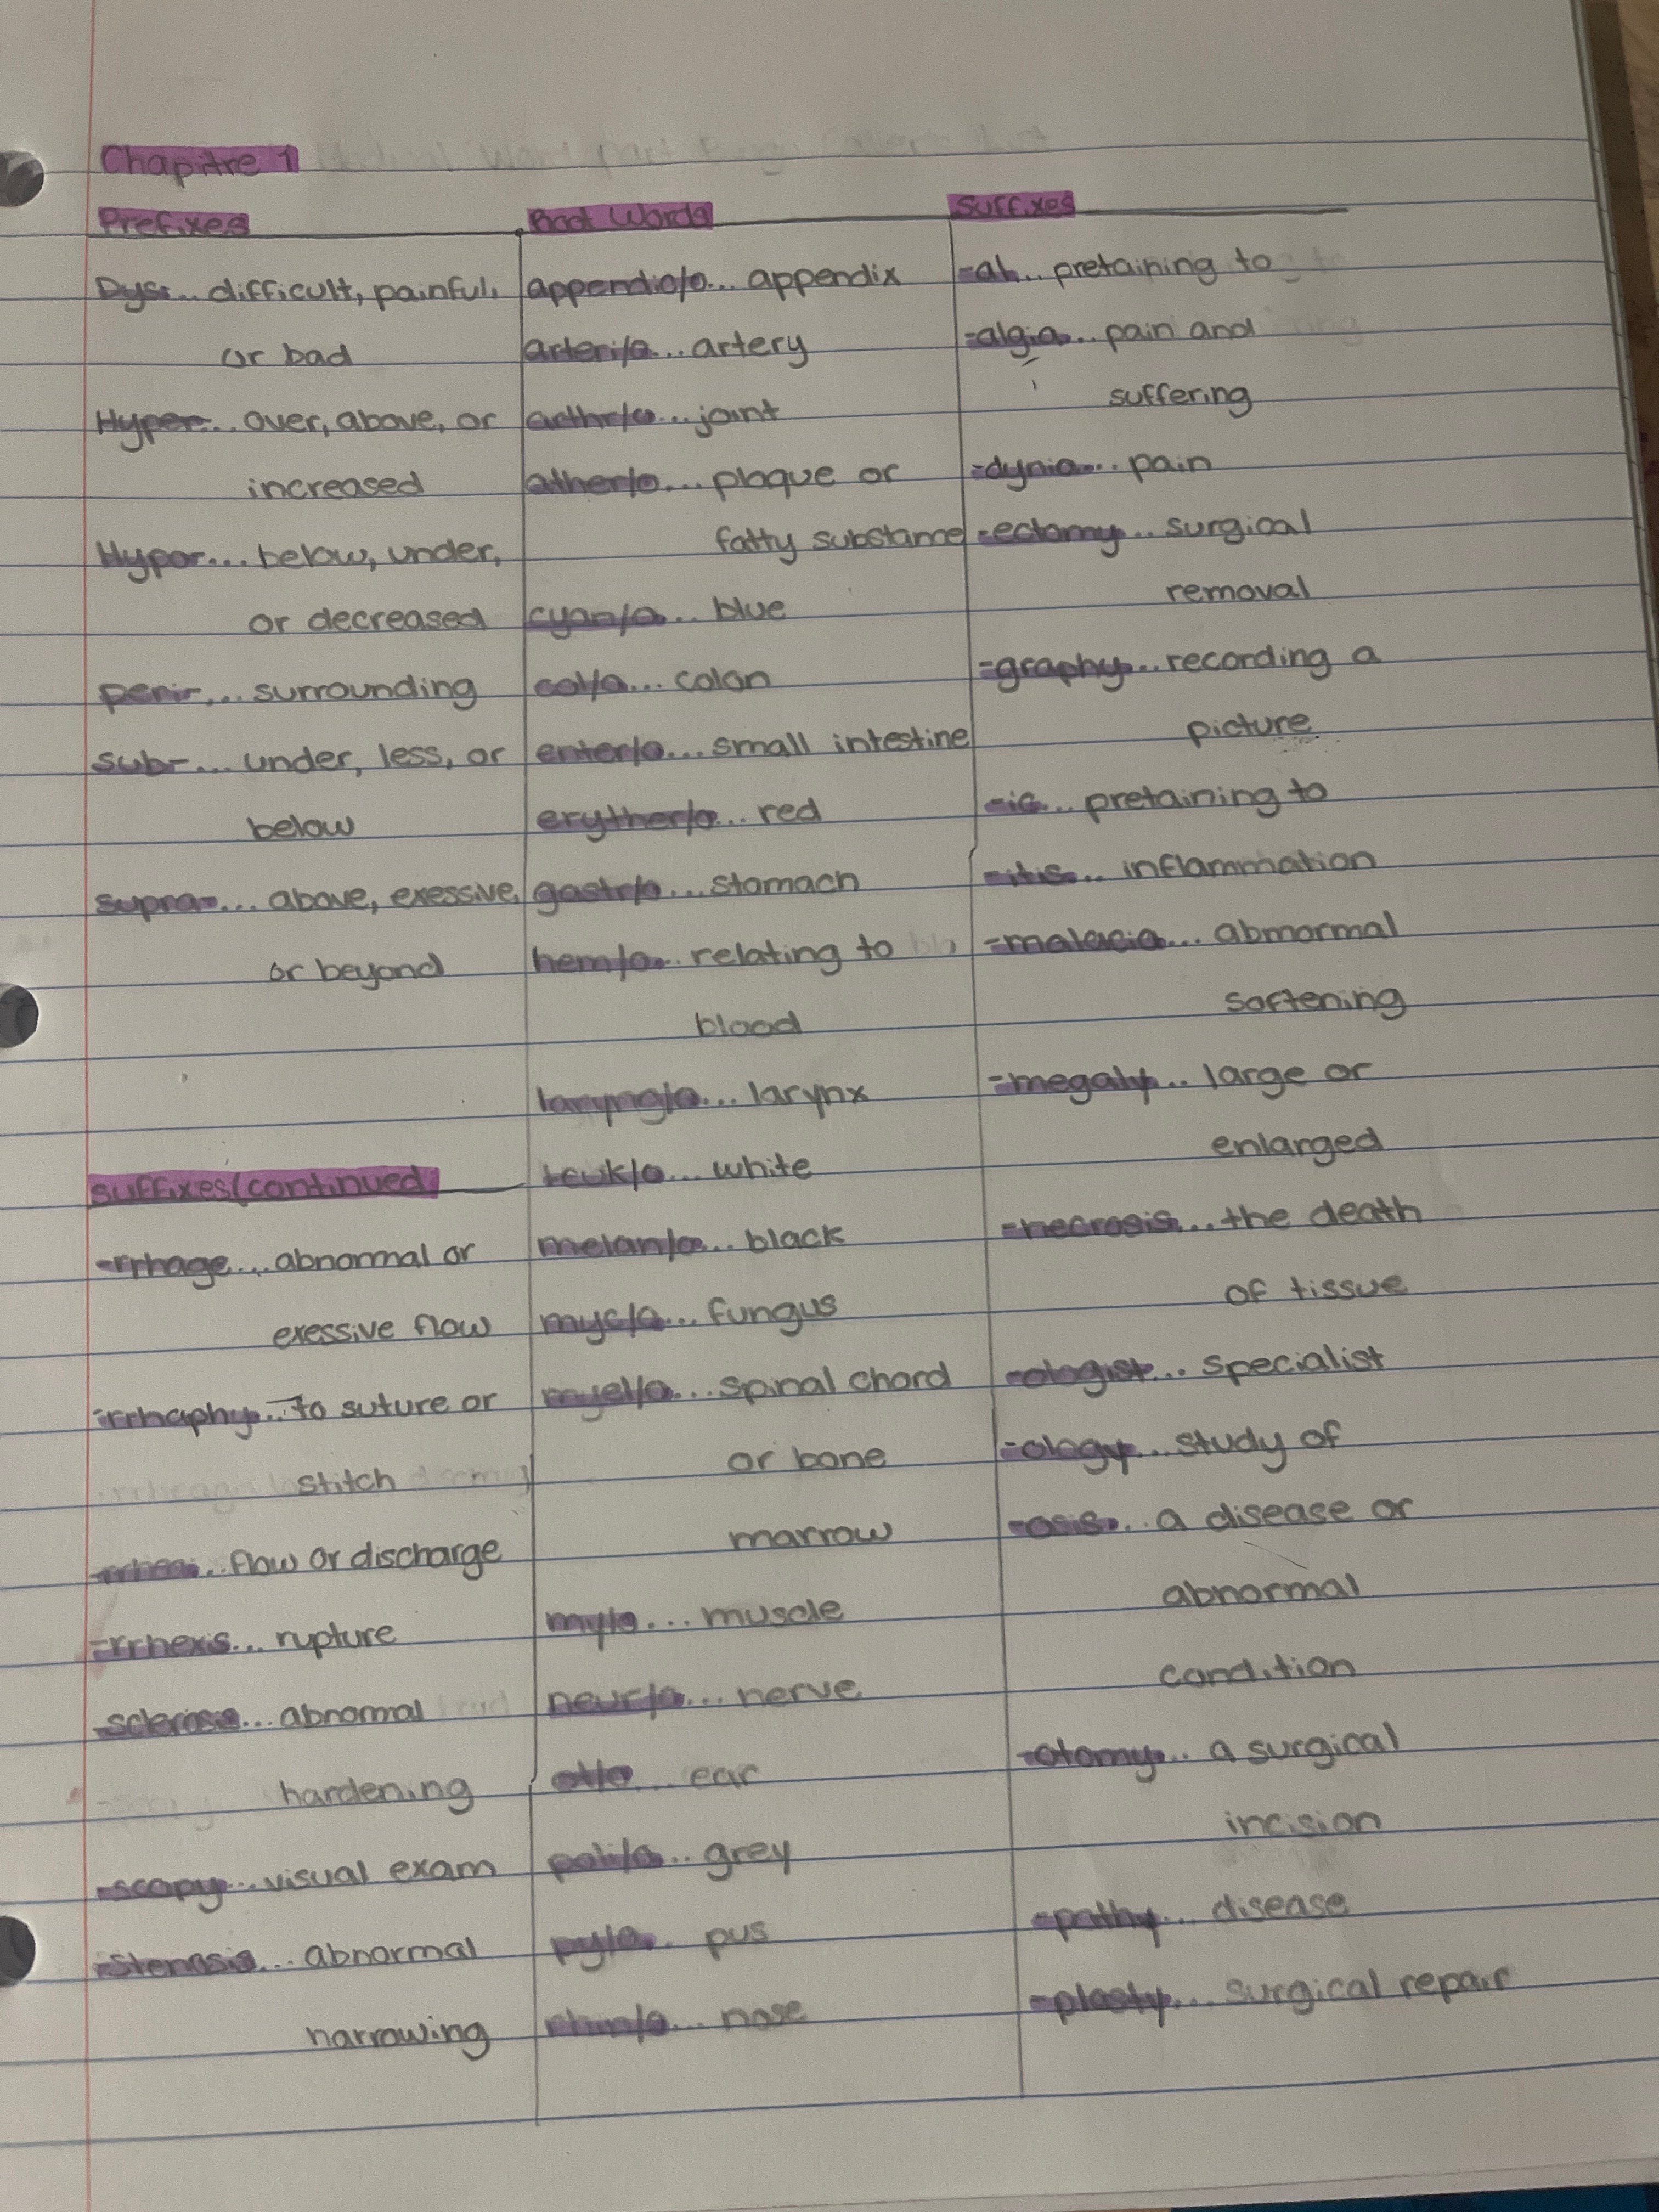 Chapitre 1
Prefixes
Dys-... difficult, painful,
or bad
Hyper-... over, above, or
increased
Hypo-... below, under,
or decreased
peri-... surrounding
sub-... under, less, or
below
supra-... above, exessive,
or beyond
Suffixes(continued
-rrhage... abnormal or
exessive flow
-rrhaphy... To suture or
stitch
-rrhea... flow or discharge
-rrhexis... rupture
-sclerosis... abnormal
hardening
-scopy... visual exam
-stenosis... abnormal
narrowing
Root Words
appendic/o... appendix
arteri/o... artery
arthr/o... joint
ather/o... plaque or
fatty substance
cyan/o... blue
col/o... colon
enter/o... small intestine
erythr/o... red
gastr/o... stomach
hem/o... relating to
blood
laryng/o... larynx
leuk/o... white
melan/o... black
myc/o... fungus
myel/o... spinal chord
or bone
marrow
my/o... muscle
neur/o... nerve
ot/o... ear
poli/o... grey
py/o... pus
rhin/o... nose
Suffixes
-al... pretaining to
-algia... pain and
suffering
-dynia... pain
-ectomy... surgical
removal
-graphy... recording a
picture
-ic... pretaining to
-itis... inflammation
-malacia... abmormal
softening
-megaly... large or
enlarged
-necrosis... the death
of tissue
-ologist... specialist
-ology... study of
-osis... a disease or
abnormal
condition
-otomy... a surgical
incision
-pathy... disease
-plasty... surgical repair